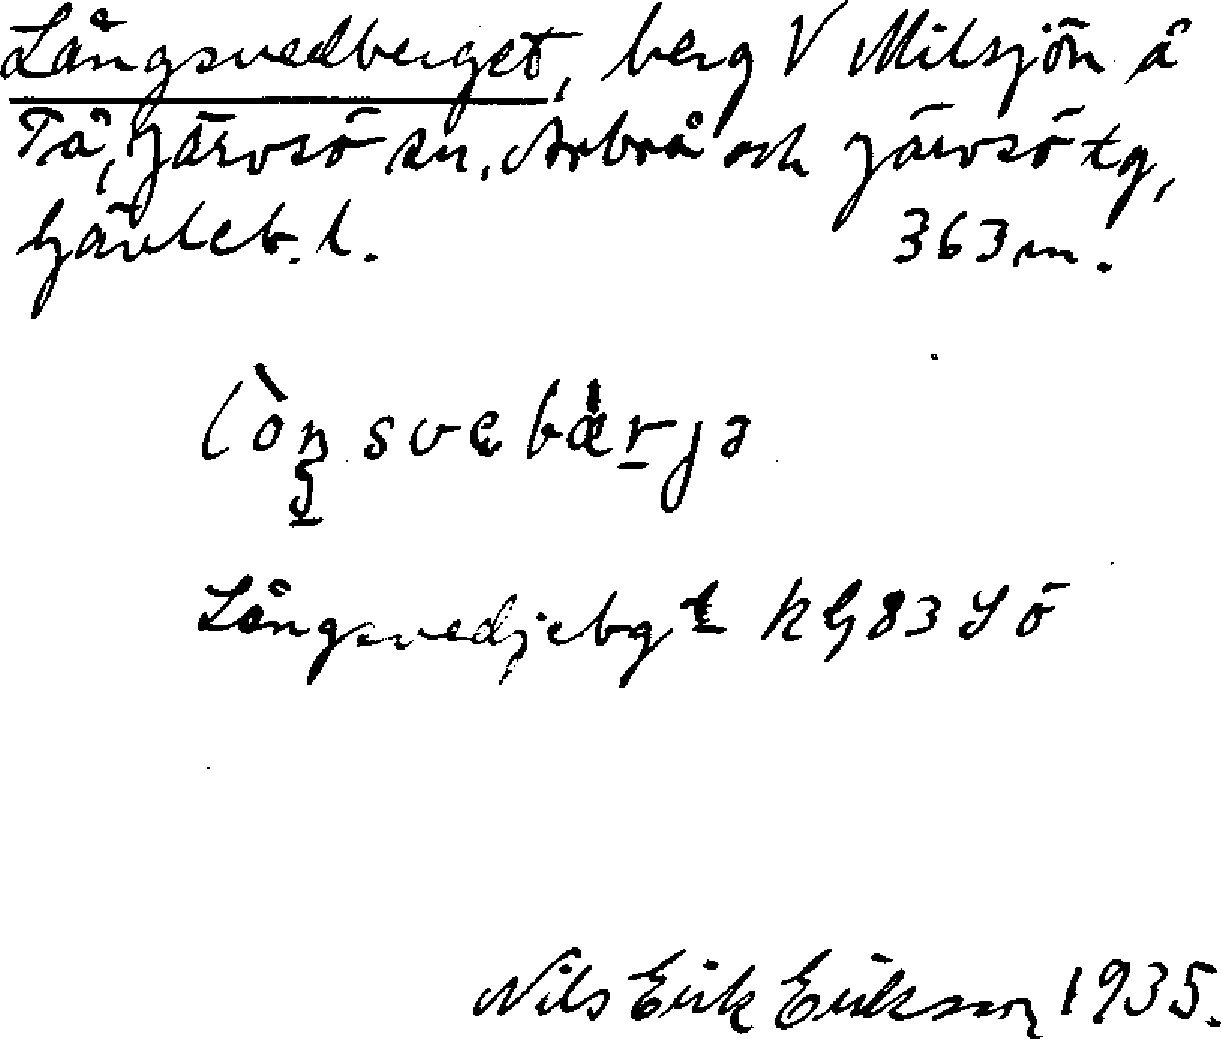 Långsvedberget, berg V Milsjön å
Tå, Järvsö sn, Arbrå och Järvsö tg,
Gävleb. l. 363 m.
Långsvedjebgt kG83 SÖ
Nils Erik Eriksson 1935.